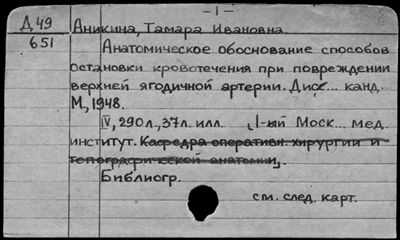 – I –
Д 49
651
Аникина, Тамара Ивановна.
Анатомическое обоснование способов
остановки кровотечения при повреждении
верхней ягодичной артерии. Дисс... канд...
М, 1948.
IV, 290л., 37л. илл. [I-ый Моск. мед.
институт. Кафедра оперативн. хирургии и
топографической анатомии].
Библиогр.
см. след. карт.